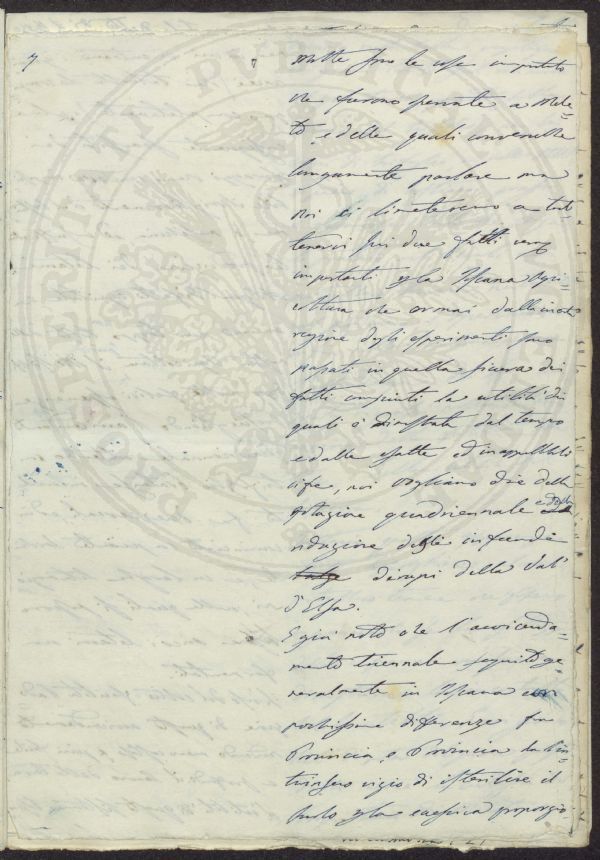 7
Molte sono le cose importanti
che furono operate a Mele-
to, e delle quali converrebbe
lungamente parlare ma
noi ci limiteremo a trat-
tenervi sui due fatti
importanti p la Toscana Agri-
coltura che ormai dall'incerta
regione degli esperimenti sono
passati in quella sicura dei
fatti compiuti la utilità dei
quali è dimostrata dal tempo
e dalle esatte ed inappellabili
cifre, noi vogliamo dire della
rotazione quadriennale e della
riduzione degli infecondi
dirupi della Val
d'Elsa.
È già noto che l'avvicenda-
mento triennale seguito ge-
neralmente in Toscana con
pochissime differenze fra
Provincia, e Provincia ha l'in-
trinseco vizio di isterilire il
suolo p la eccessiva proporzio-
PROSPERITATI PUBLICAE